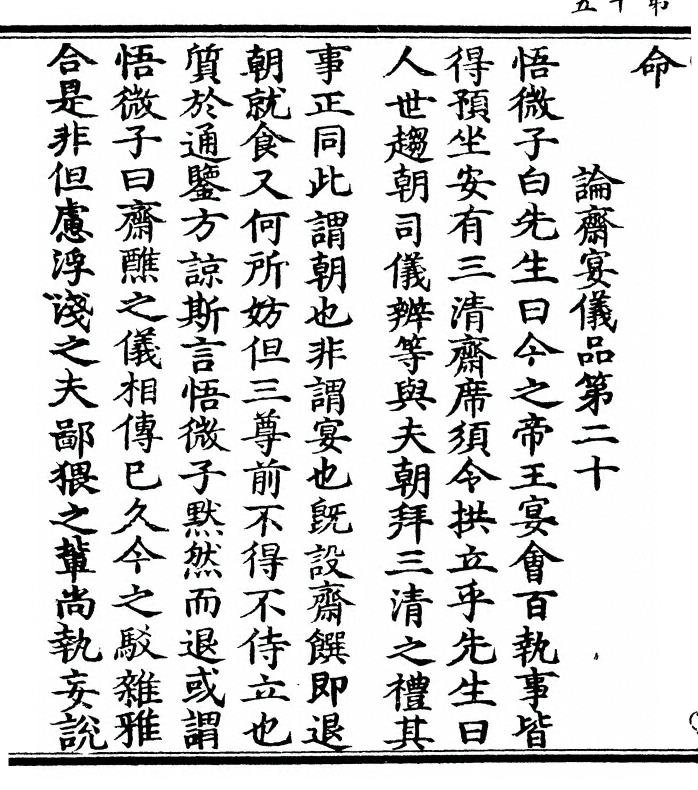 命
論齋宴儀品第二十
悟微子白先生曰今之帝王宴會百執事皆
得預坐安有三清齋席須令拱立乎先生曰
人世趨朝司儀辨等與夫朝拜三清之禮其
事正同此謂朝也非謂宴也旣設齋饌即退
朝就食又何所妨但三尊前不得不侍立也
質於通鑒方諒斯言悟微子默然而退或謂
悟微子曰齋醮之儀相傳已久今之駁雜雅
合是非但慮浮淺之夫鄙猥之輩尚執妄說